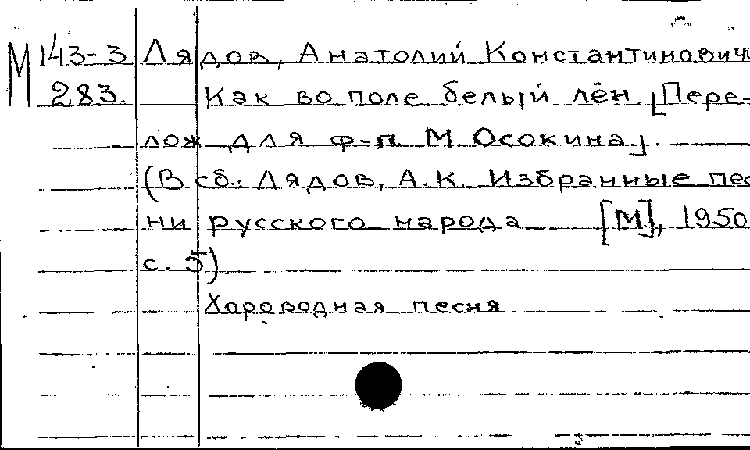 М 143-3 Лядов, Анатолий Константинович
283. Как во поле белый лён [Пере-
лож для ф-п М Осокина].
(В сб.: Лядов, А.К. Избранные пес
ни русского народа [М], 1950
с. 5)
Хороводная песня